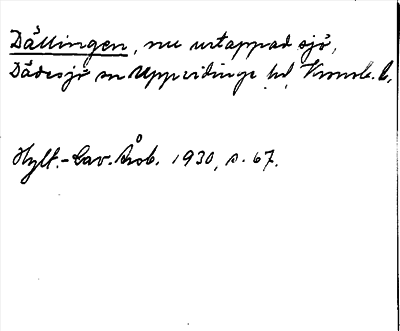 Dållingen, nu urtappad sjö,
Dädesjö sn Uppvidinge hd, Kronob. l.
Hylt.-Cav. Årsb. 1930, s. 67.